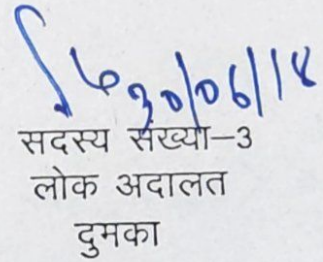 30/06/18
सदस्य संख्या-3
लोक अदालत
दुमका